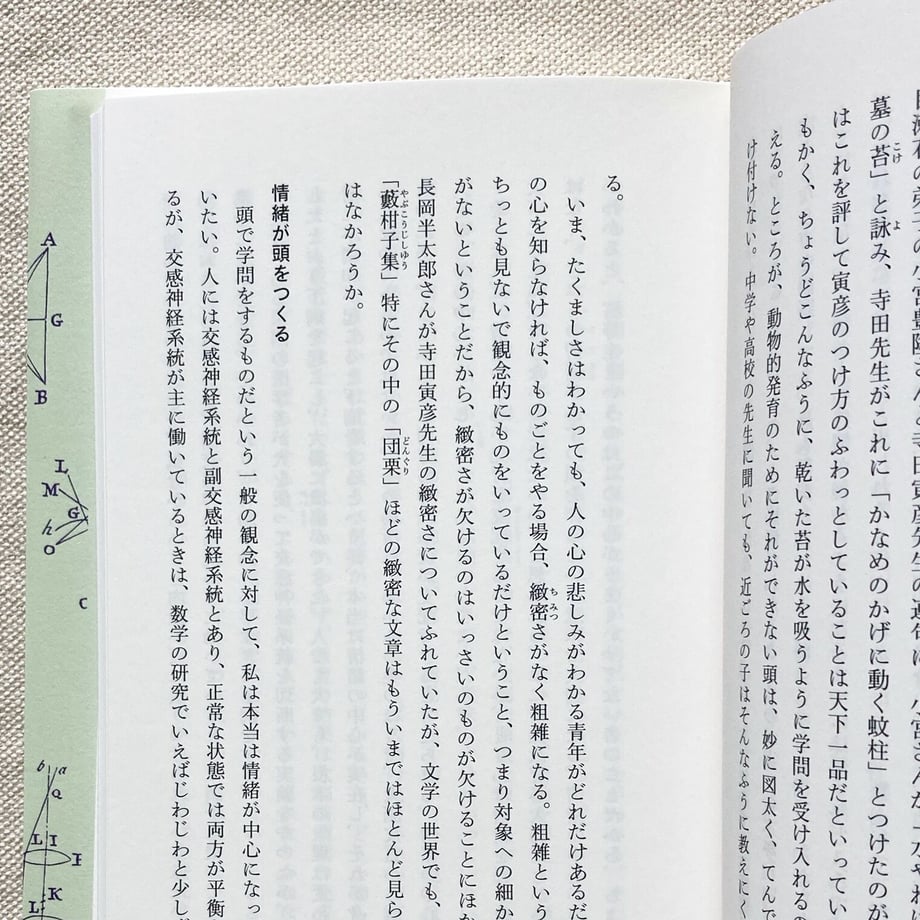 墓の苔」と詠み、寺田先生がこれに「かなめのかげに動く蚊柱」とつけたのが
はこれを評して寅彦のつけ方のふわっとしていることは天下一品だといってい
もかく、ちょうどこんなふうに、乾いた苔が水を吸うように学問を受け入れる
える。ところが、動物的発育のためにそれができない頭は、妙に図太く、てんで
け付けない。中学や高校の先生に聞いても、近ごろの子はそんなふうに教えにく
る。
いま、たくましさはわかっても、人の心の悲しみがわかる青年がどれだけあるだ
の心を知らなければ、ものごとをやる場合、緻密さがなく粗雑になる。粗雑という
ちっとも見ないで観念的にものをいっているだけということ、つまり対象への細か
がないということだから、緻密さが欠けるのはいっさいのものが欠けることにほか
長岡半太郎さんが寺田寅彦先生の緻密さについてふれていたが、文学の世界でも、
「藪柑子集」特にその中の「団栗」ほどの緻密な文章はもういまではほとんど見ら
はなかろうか。
情緒が頭をつくる
頭で学問をするものだという一般の観念に対して、私は本当は情緒が中心になっ
いたい。人には交感神経系統と副交感神経系統とあり、正常な状態では両方が平衡
るが、交感神経系統が主に働いているときは、数学の研究でいえばじわじわと少し
A
G
B
L
M
G
h
O
C
b a
Q
L I
K
L